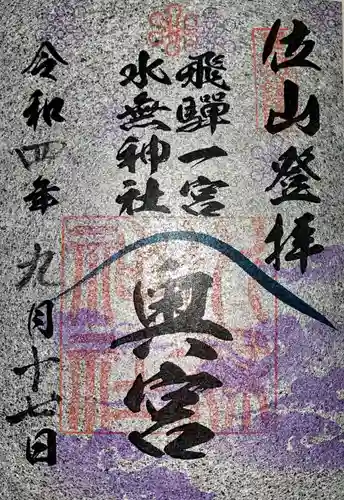 位山登拝
飛驒一宮
水無神社
奥宮
令和四年九月十七日